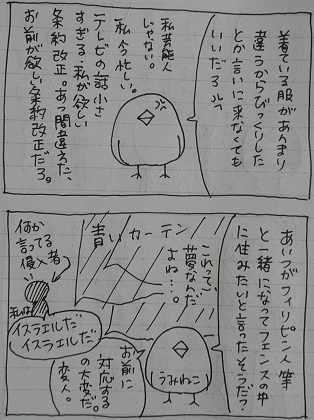 着ている服があまり
違うからびっくりした
とか言いに来なくても
いいだろ
私芸能人
じゃない。
私今忙しい。
テレビの話小さ
すぎる私が欲しい
条約改正。あっ間違えた、
お前が欲しい条約改正だろ。
あいつがフィリピン人輩
と一緒になってフェンスの中
に住みたいと言ったそうだ?
これって、
夢なんだ
よね…。
青いカーテン
何か
言ってる
優い×者
私は
イスラエルだ
イスラエルだ
うみねこ
お前に
対応する
の大変だ。
変人。